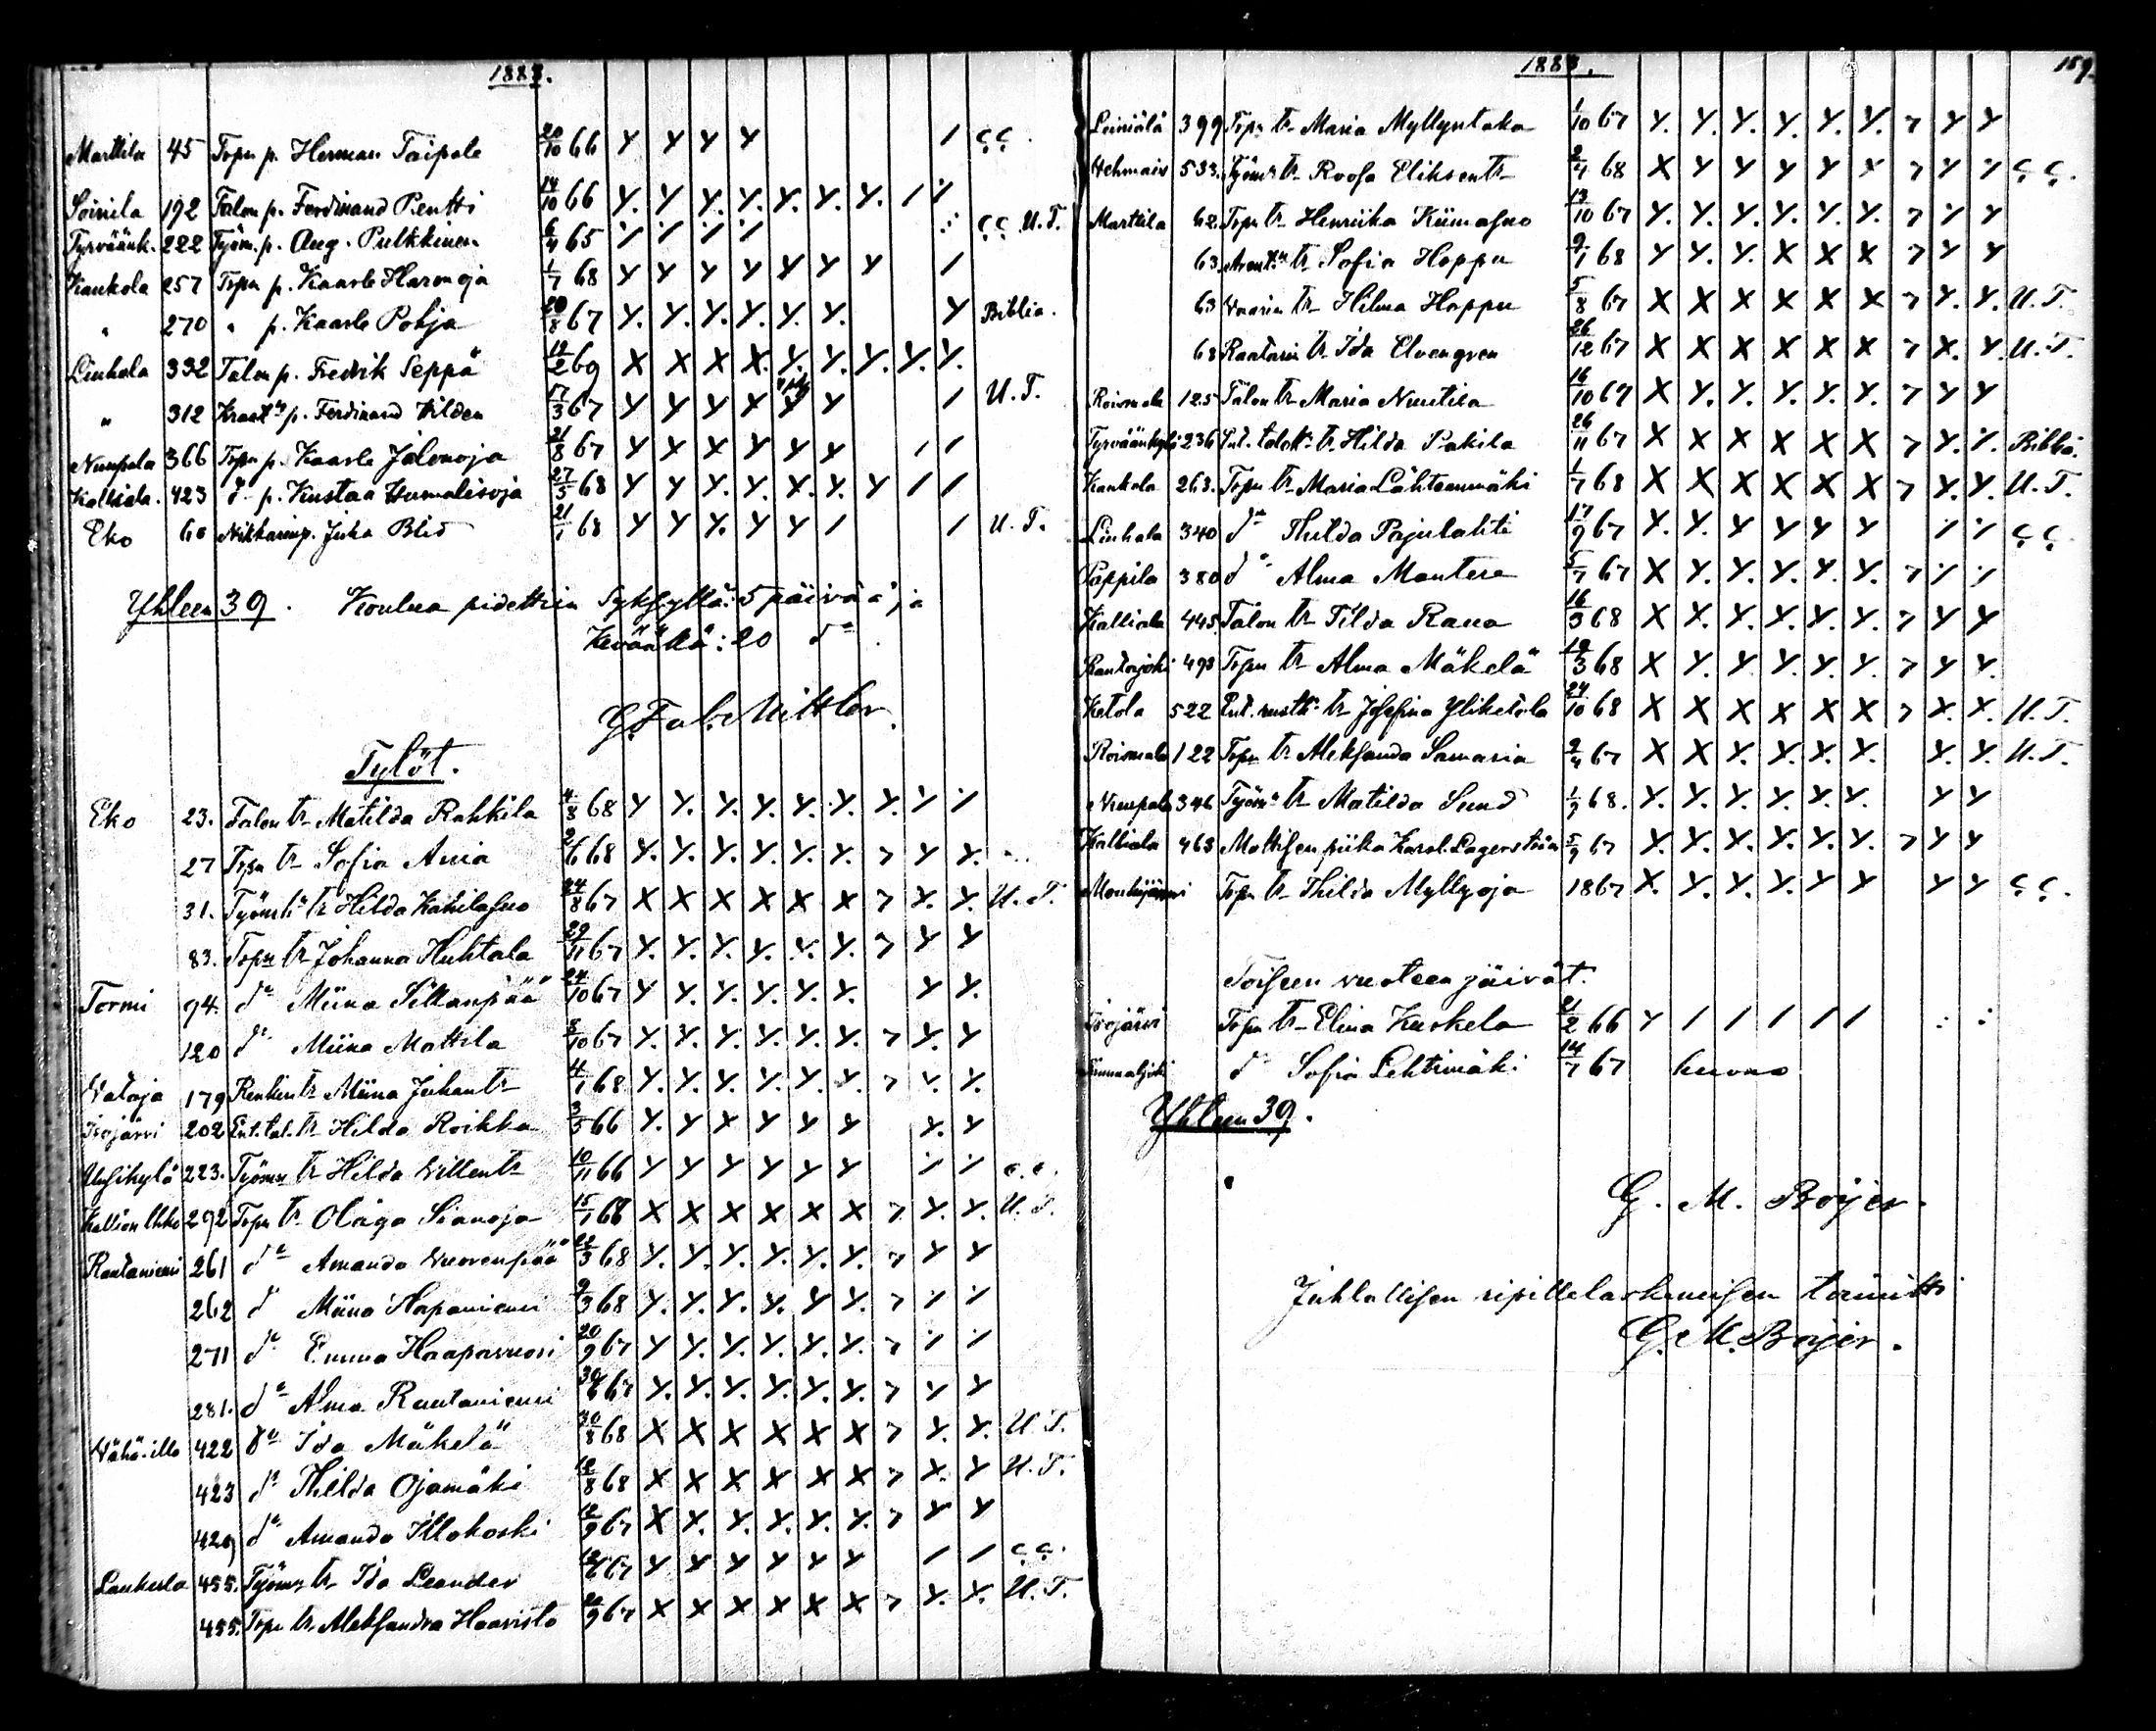 1883.
Marttila 45 Torp. p. Herman Taipale 20/10 66 Y Y Y Y / çç.
Soinila 192 Talon p. Ferdinand Pentti 14/10 66 Y. Y Y. Y. Y. Y. Y. / ⁒
Tyrväänk. 222 Työm. p. Aug. Pulkkinen 6/4 65 ⁒ ⁒ ⁒ ⁒ çç U.T.
Kaukola 257 Torp p. Kaarle Harmoja 1/7 68 Y Y Y Y Y Y Y /
" 270 " p. Kaarle Pohja 20/8 67 Y. Y. Y. Y. Y. Y. Y Biblia.
Liuhala 332 Talon p. Fredrik Seppä 12/2 69 X X X X. Y. Y. Y. Y. Y.
" 312 p. Ferdinand Kilden 17/3 67 Y Y Y X Y Y / U.T.
Nuupala 366 Torp p. Kaarle Jalonoja 21/8 67 Y X X Y Y Y / /
Kalliala. 423 d:o p. Kustaa Humalisoja 27/5 68 Y Y Y. Y. X. Y. Y / /
Eko 60 Nikkarin p. Juha Blid 21/1 68 Y Y Y. Y Y / / U.T.
Yhteen 39. Koulua pidettiin Syksyllä: 5 päivää ja
Keväällä: 20 d:o.
Tytöt.
Eko 23. Talon tr Matilda Rahkila 4/8 68 Y Y. Y. Y. Y. Y. Y. ⁒ ⁒
27 Torp tr Sofia Ania 2/6 68 Y. Y. Y. Y. Y. Y. 7 Y Y.
31. tr Hilda Kahilasuo 24/8 67 X X X X X X 7 X. X. U.T.
83. Torp tr Johanna Huhtala 29/11 67 Y. Y. Y. Y. Y. Y. 7 Y Y
Tormi 94. d:o Miina Sillanpää 24/10 67 Y Y. Y. Y. Y. Y. Y Y.
120 d:o Miina Mattila 8/10 67 Y. Y. Y. Y. Y. Y. 7 Y. Y
Vataja 179 Renkin tr Miina Juhantr 4/1 68 Y. Y. Y. Y. Y. Y. 7 Y. Y.
Isojärvi 202 Ent. tal. tr Hilda Roikka 3/5 66 Y. Y X Y Y Y Y. Y
Uusikylä 223. Työm tr Hilda Villentr 10/11 66 Y Y Y Y Y Y ⁒ ⁒ ç.ç.
292 Torp tr Olaga Sianoja 15/1 68 X X X X X X 7 Y. Y. U.T.
Rautaniemi 261 d:o Amanda Vuorenpää 22/3 68 Y. Y. Y. Y. Y. Y. 7 Y Y
262 d:o Miina Haponiemi 9/3 68 Y. Y. Y. Y. Y. Y. 7 ⁒ ⁒
271 d:o Emma Haapavuori 20/9 67 Y Y. Y. Y. Y. Y. 7 ⁒ ⁒
281. d:o Alma Rautaniemi 30/6 67 Y. Y. Y. Y. Y. Y. 7 Y Y
Vähä-illo 422 d:o Ida Mäkelä 30/8 68 X X X X X X 7 Y. Y. U.T.
423 d:o Thilda Ojamäki 12/8 68 X X X X X X 7 X. Y U.T.
429 d:o Amanda Illokoski 12/9 67 X X. Y. Y. Y. Y. 7 Y Y
Laukula 455. Työm tr Ida Leander 12/6 67 Y Y Y Y Y Y / / çç.
455. Torp tr. Aleksandra Haavisto 20/9 67 X X X X X X 7 Y. Y. U.T.
1883. 159.
Leiniälä 399 Torp tr Maria Myllyntaka 1/10 67 Y. Y. Y. Y. Y. Y. 7 Y Y
533. Työm tr Roosa Eliksentr 2/4 68 X Y Y Y Y Y 7 Y Y çç.
Marttila 62. Torp tr Henriika Kiimasuo 13/10 67 Y. Y. Y. Y. Y. Y. 7 Y Y
63. tr Sofia Hoppu 9/1 68 Y Y. Y. X X X 7 Y Y
63 Vaarin tr Hilma Hoppu 5/8 67 X X X X X X 7 Y. Y. U.T.
68 Raatarin tr Ida Elvengren 26/12 67 X X X X X X 7 X. Y. U.T.
Roismala 125 Talon tr Maria Nuutila 16/10 67 X Y. Y. Y. Y. Y. 7 Y Y
Tyrväänkylä 236 tr. Hilda Pakila 26/11 67 X X X X X X 7 Y. Y. Biblia.
Kaukola 263. Torp tr Maria Lähteenmäki 1/7 68 X X X X X X 7 Y. Y. U.T.
Liuhala 340 d:o Thilda Pajulahti 17/9 67 Y. Y. Y Y Y Y ⁒ ⁒ çç.
Pappila 380 d:o Alma Mantere 5/7 67 X Y. Y. Y. Y. Y. 7 ⁒ ⁒
Kalliala 445. Talon tr Tilda Raua 16/3 68 X X. X. Y. Y. Y. 7 Y Y
Rautajoki 493 Torp tr Alma Mäkelä 12/3 68 X Y. Y. Y. Y. Y. 7 Y Y.
Ketola 522 tr Josefina Yliketola 24/10 68 X X X X X X 7 X. X. U.T.
Roismala 122 Torp tr Aleksanda Samaria 2/4 67 X X Y. Y. Y. Y. Y. Y. U.T.
Nuupala 346 Työm tr Matilda Sund 1/9 68. Y. Y. Y. Y. Y. Y. Y Y
Kalliala 463 piika Karol. Lagerström 5/9 67 X. Y. Y. Y. Y. Y. 7 Y Y
Mouhijärvi Torp tr Thilda Myllyoja 1867 X. Y. Y. Y. Y. Y Y Y çç.
Toiseen vuoteen jäivät.
Isojärvi Torp tr Elina Kuskela 21/2 66 Y / / / / /
d:o Sofia Lehtimäki 14/7 67 huono
Yhteen 39.
G. M. Boijer.
Juhlallisen ripillelaskemisen toimitti
G. M. Boijer.